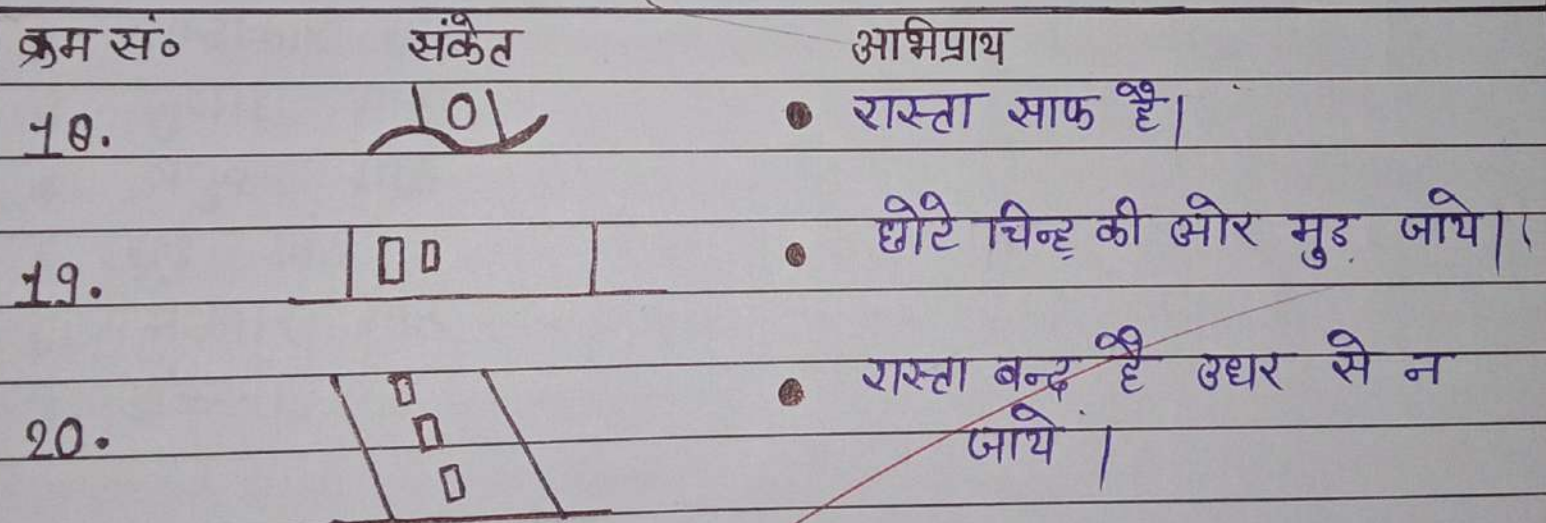 क्रम सं० संकेत अभिप्राय
18. • रास्ता साफ है।
19. • छोटे चिन्ह की ओर मुड़ जाये।
20. • रास्ता बन्द है उधर से न
जाये।